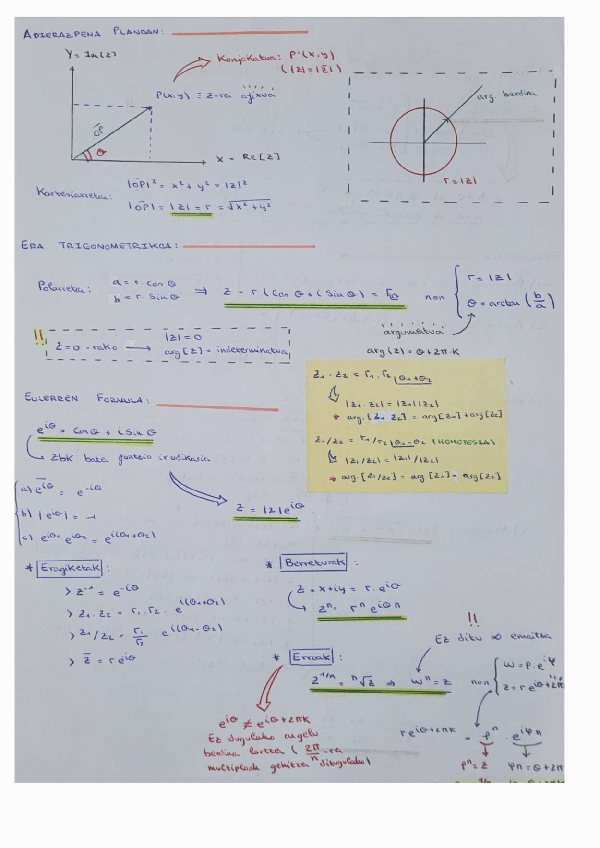 ADIERAZPENA PLANOAN:
Y = Im[z]
Konjokatua: P'(x,y)
(|z| = |z̄|)
P(x,y) ≡ z-ra afixua
|OP|
θ
x = Re[z]
arg. berdina
r = |z|
Kartesiarretan: |OP|² = x² + y² = |z|²
|OP| = |z| = r = √x² + y²
ERA TRIGONOMETRIKOA:
Polarretan: a = r · cos θ
b = r · sin θ
⇒ z = r (cos θ + i sin θ) = r θ non
r = |z|
θ = arctan (b/a)
argumentua
arg (z) = θ + 2π · k
!! z = 0 - rako → |z| = 0
arg[z] = indeterminatua
z₁ · z₂ = r₁ · r₂ |θ₁+θ₂
|z₁ · z₂| = |z₁| |z₂|
* arg. [z₁ · z₂] = arg[z₁] + arg[z₂]
z₁/z₂ = r₁/r₂ |θ₁-θ₂ (HOMOTEZIA)
|z₁/z₂| = |z₁|/|z₂|
* arg. [z₁/z₂] = arg [z₁] - arg[z₂]
EULERREN FORMULA:
e^iθ = cos θ + i sin θ
zbk bat
a) e^iθ = e^-iθ
b) |e^iθ| = 1
c) e^iθ₁ e^iθ₂ = e^i(θ₁+θ₂)
z = |z| e^iθ
* Eragiketak :
> z⁻¹ = e^-iθ
> z₁ · z₂ = r₁ · r₂ · e^i(θ₁+θ₂)
> z₁/z₂ = r₁/r₂ · e^i(θ₁-θ₂)
> z̄ = r e^iθ
* Berreturak :
z = x + iy = r · e^iθ
zⁿ = rⁿ e^iθn
!!
Ez ditu ∞ emaitza
* Erroak :
z^1/n = ⁿ√z ⇒ wⁿ = z non
w = ρ · e^iφ
z = r e^iθ+2π
e^iθ ≠ e^iθ+2πk
Ez dugulako angelu
berdina lortzen (2π/n -ra
multiploak gehitzen ditugulako)
r e^iθ+2πk = ρⁿ · e^iφn
ρⁿ = z
φn = θ+2π